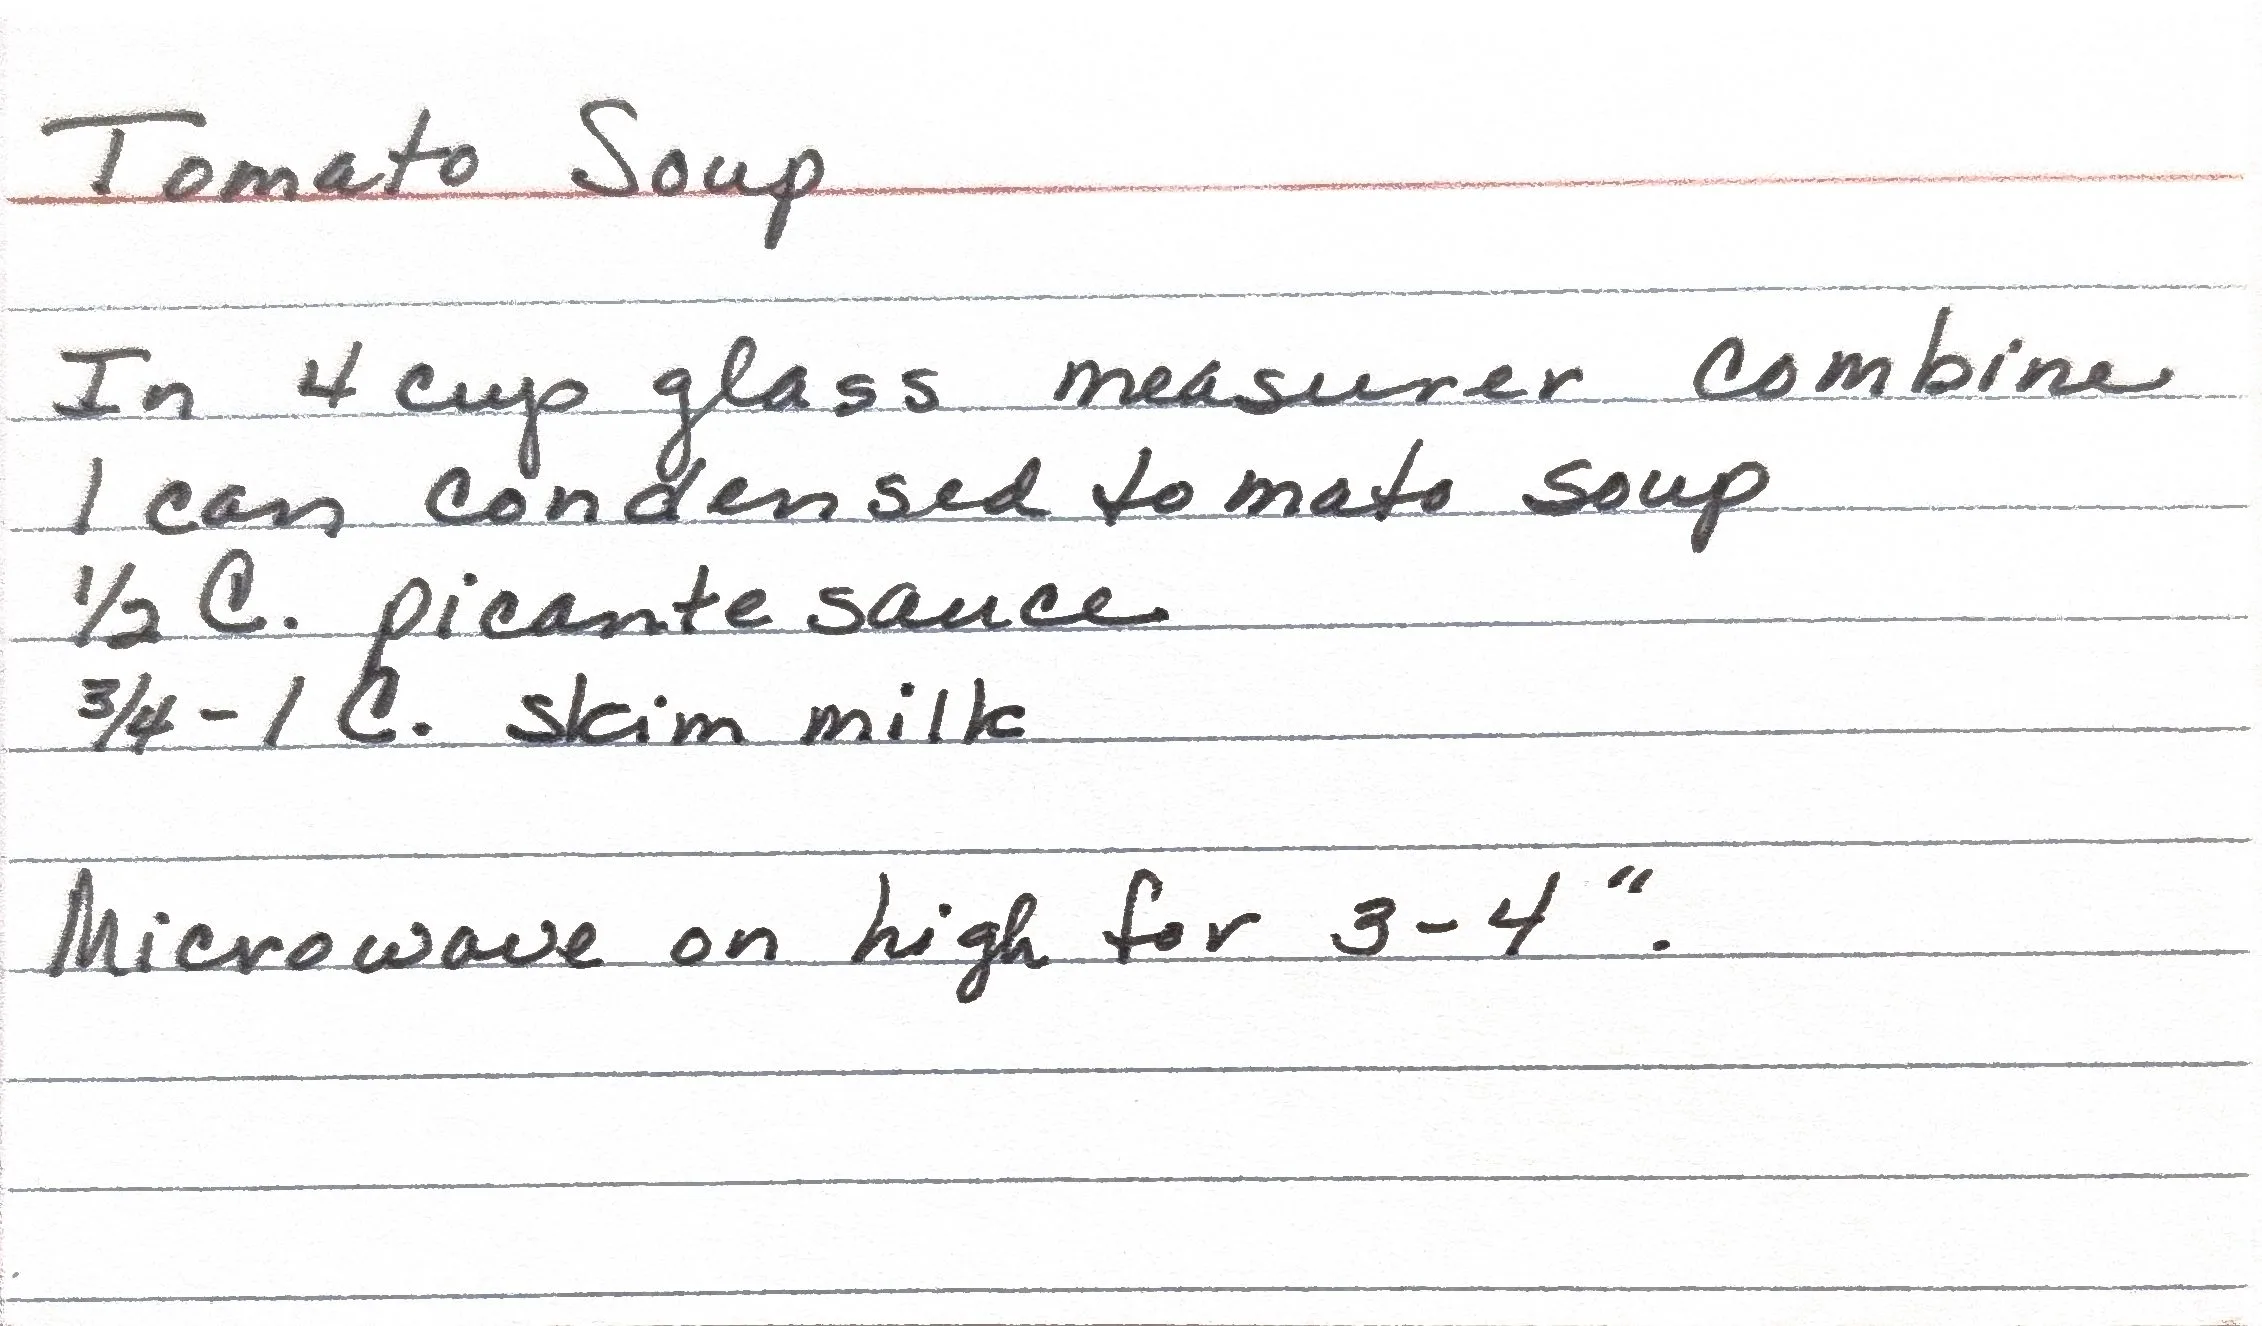 Tomato Soup
In 4 cup glass measurer combine
1 can condensed tomato soup
1/2 C. picante sauce
3/4 - 1 C. skim milk
Microwave on high for 3-4".